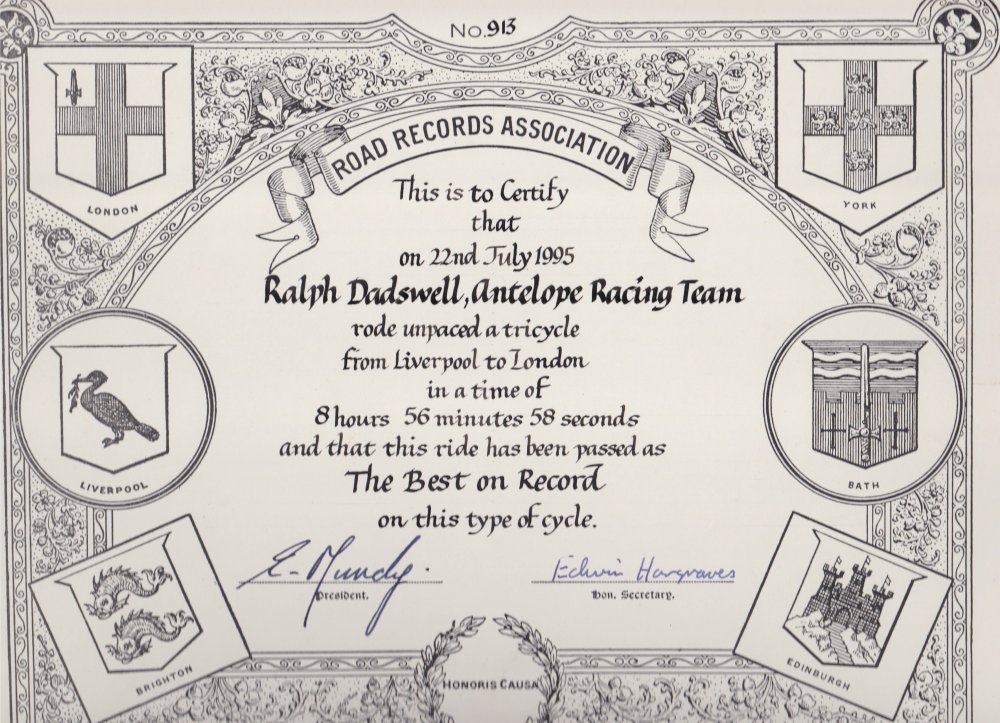 No. 913
ROAD RECORDS ASSOCIATION
LONDON
YORK
This is to Certify
that
on 22nd July 1995
Ralph Dadswell, Antelope Racing Team
rode unpaced a tricycle
from Liverpool to London
in a time of
8 hours 56 minutes 58 seconds
and that this ride has been passed as
The Best on Record
on this type of cycle.
LIVERPOOL
BATH
E. Mundy.
President.
Edwin Hargraves
Hon. Secretary.
BRIGHTON
EDINBURGH
HONORIS CAUSA